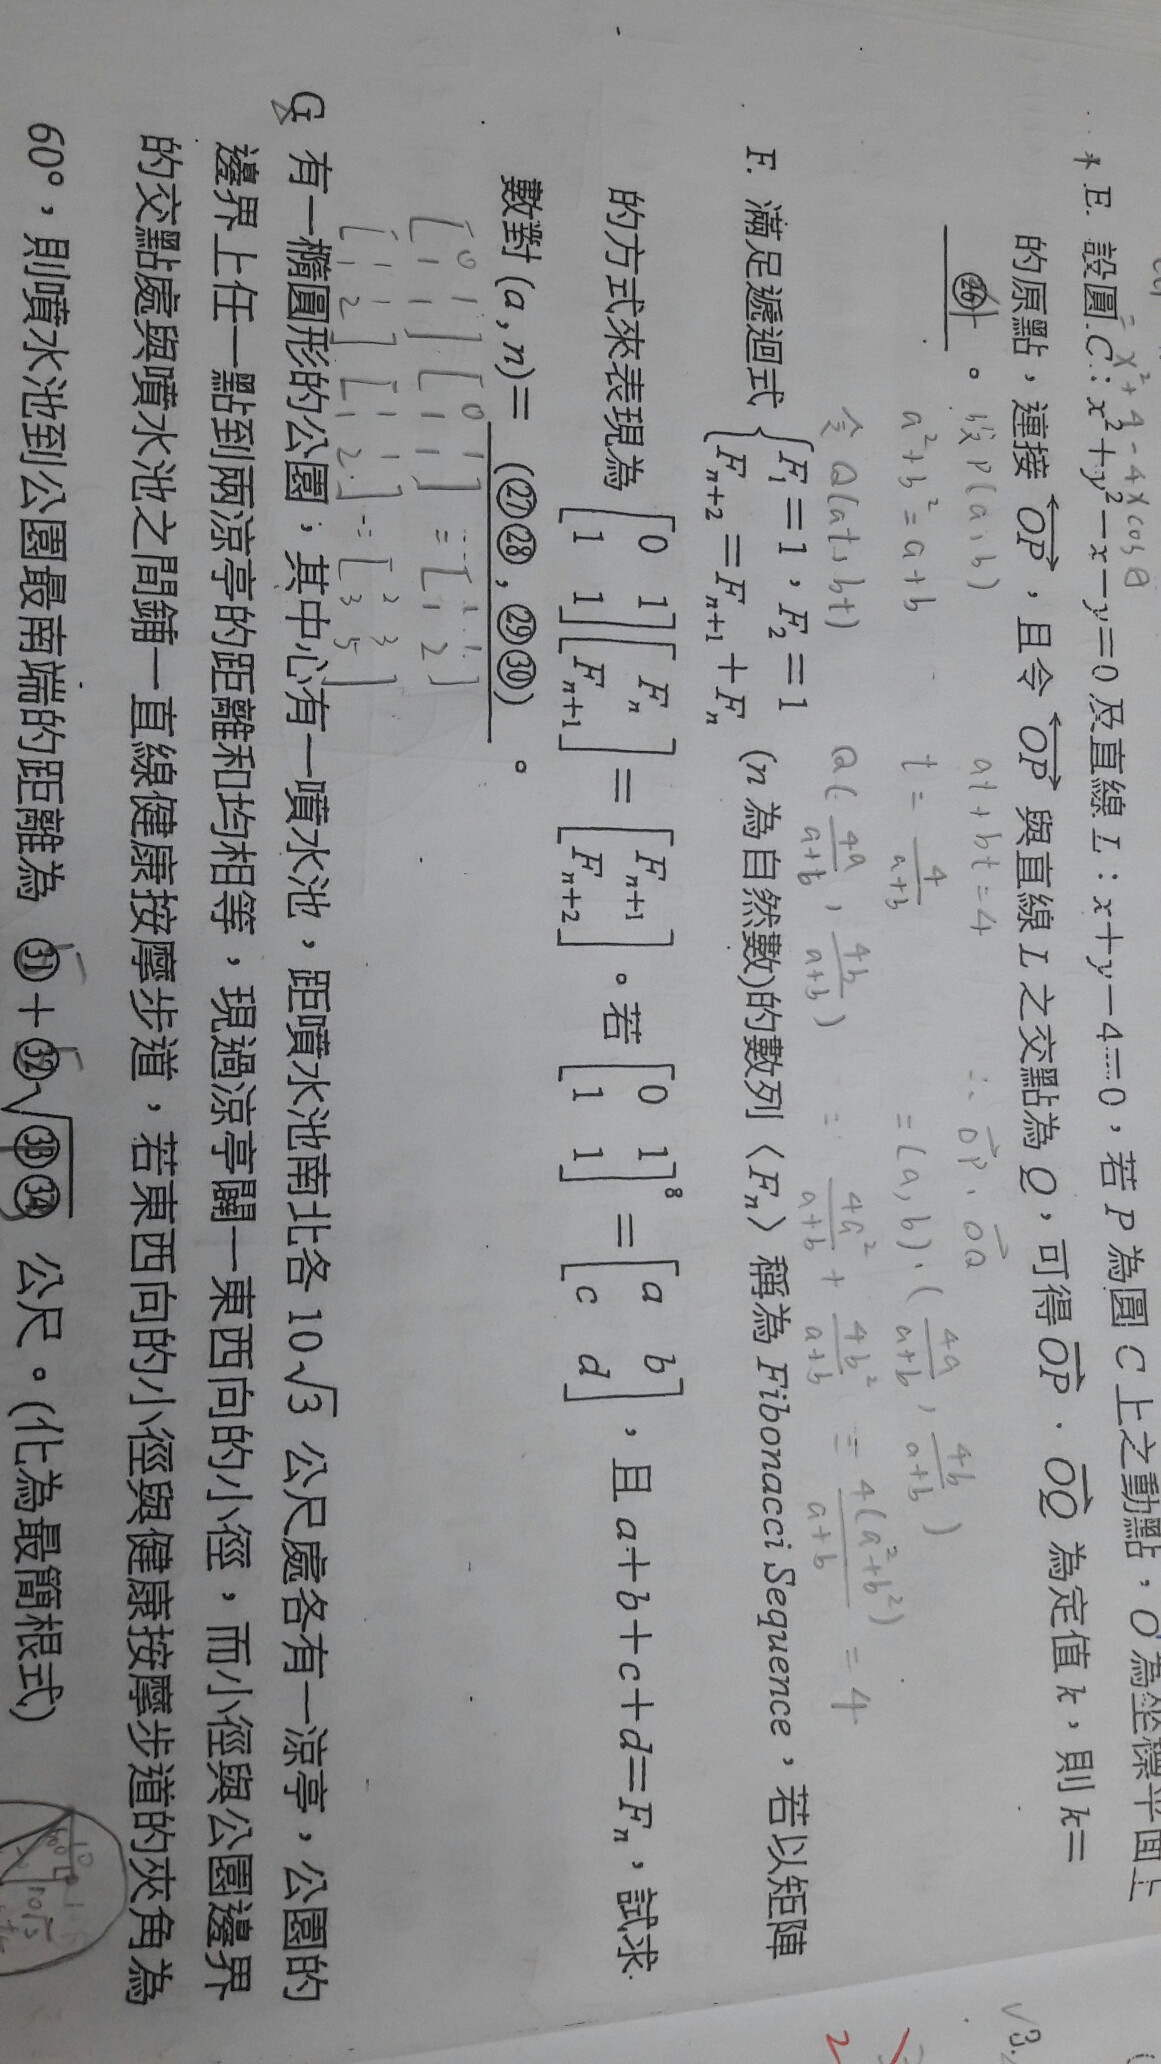 = x² + 4 - 4x cos θ
* E. 設圓 C：x²+y²−x−y=0 及直線 L：x+y−4=0，若 P 為圓 C 上之動點，O 為坐標平面上
的原點，連接 OP，且令 OP 與直線 L 之交點為 Q，可得 OP · OQ 為定值 k，則 k=
㉖ 。
設 P(a, b) at+bt=4 ∴ OP · OQ
a²+b²=a+b t = 4/(a+b) = (a, b) · (4a/(a+b), 4b/(a+b))
令 Q(at, bt) Q(4a/(a+b), 4b/(a+b)) = 4a²/(a+b) + 4b²/(a+b) = 4(a²+b²)/(a+b) = 4
F. 滿足遞迴式 { F₁=1，F₂=1
Fₙ₊₂=Fₙ₊₁+Fₙ (n 為自然數)的數列〈Fₙ〉稱為 Fibonacci Sequence，若以矩陣
的方式來表現為 [0 1; 1 1][Fₙ; Fₙ₊₁] = [Fₙ₊₁; Fₙ₊₂]。若 [0 1; 1 1]⁸ = [a b; c d]，且 a+b+c+d=Fₙ，試求
數對 (a, n)= (㉗㉘, ㉙㉚) 。
[0 1; 1 1][0 1; 1 1] = [1 1; 1 2]
[1 1; 1 2][1 1; 1 2] = [2 3; 3 5]
G. 有一橢圓形的公園，其中心有一噴水池，距噴水池南北各 10√3 公尺處各有一涼亭，公園的
邊界上任一點到兩涼亭的距離和均相等，現過涼亭闢一東西向的小徑，而小徑與公園邊界
的交點處與噴水池之間鋪一直線健康按摩步道，若東西向的小徑與健康按摩步道的夾角為
60°，則噴水池到公園最南端的距離為 ㉛+㉜√㉝㉞ 公尺。(化為最簡根式)
10
60°
10√3
√3.
2